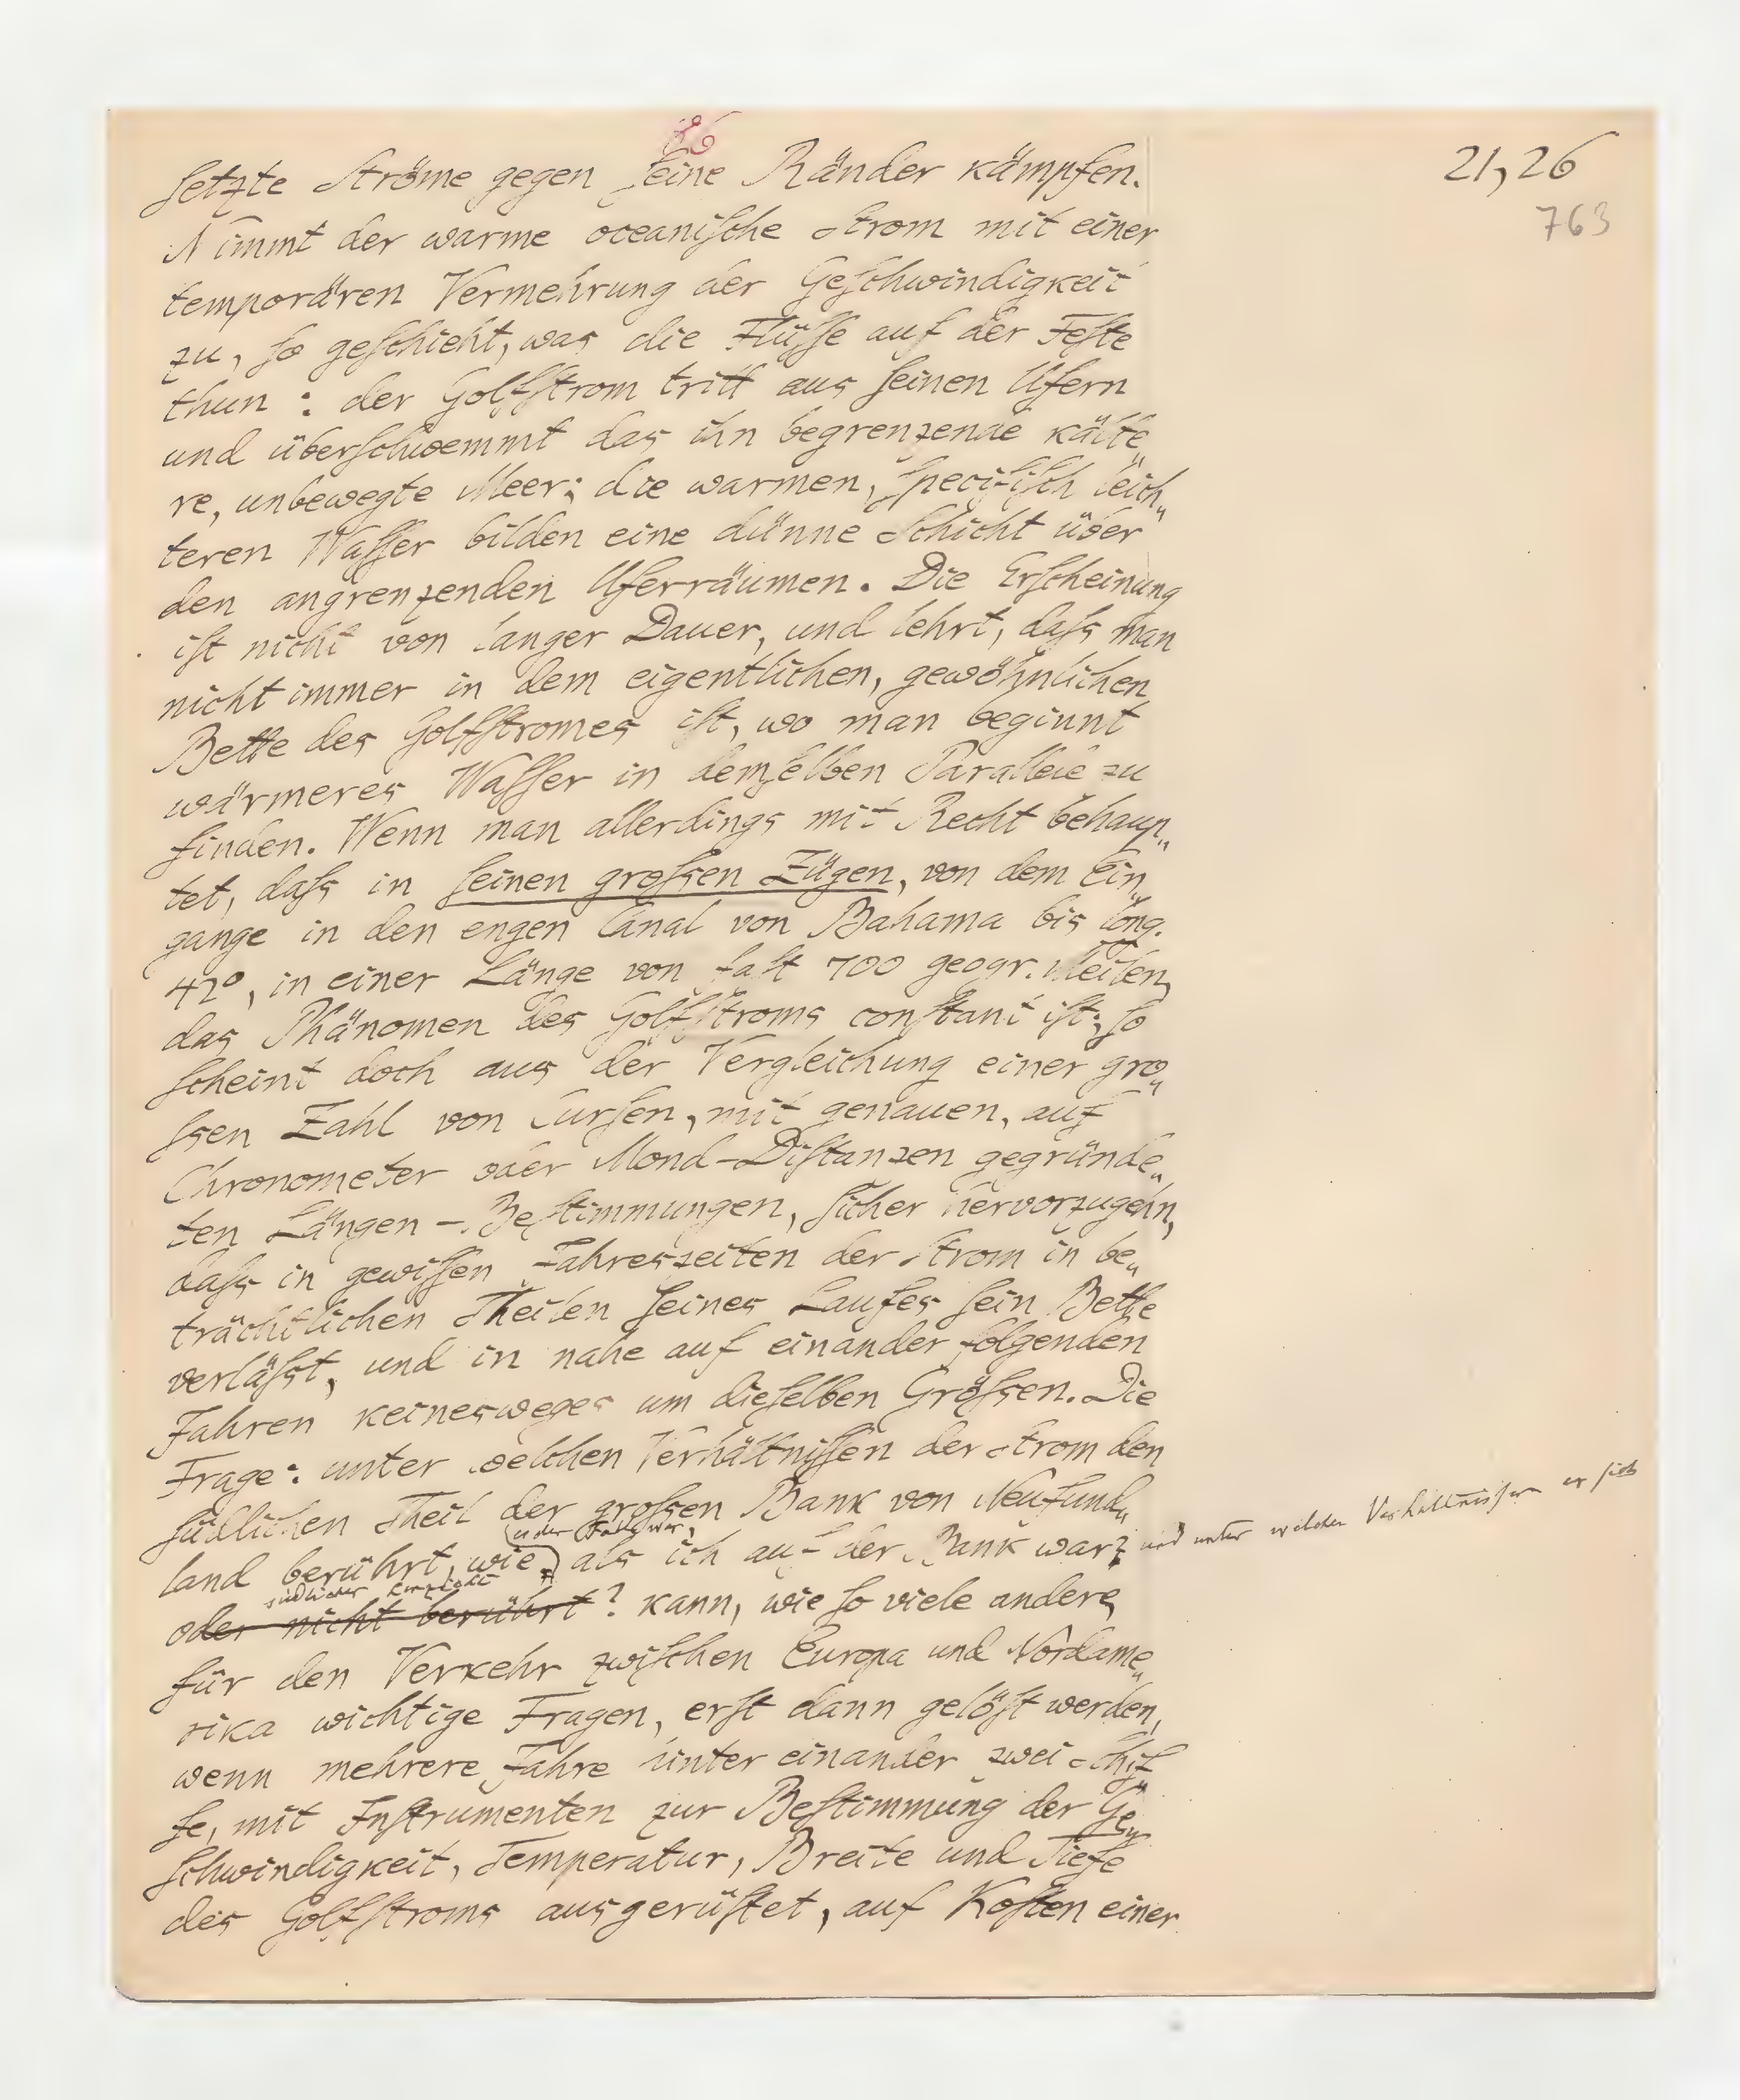 86
21, 26
763
setzte Ströme gegen seine Ränder kämpfen.
Nimmt der warme oceanische Strom mit einer
temporären Vermehrung der Geschwindigkeit
zu, so geschieht, was die Flüsse auf der Feste
thun: der Golfstrom tritt aus seinen Ufern
und überschwemmt das ihn begrenzende kälte„
re, unbewegte Meer; die warmen, specifisch leich„
teren Wasser bilden eine dünne Schicht über
den angrenzenden Uferräumen. Die Erscheinung
ist nicht von langer Dauer, und lehrt, dass man
nicht immer in dem eigentlichen, gewöhnlichen
Bette des Golfstromes ist, wo man beginnt
wärmeres Wasser in demselben Parallele zu
finden. Wenn man allerdings mit Recht behaup„
tet, dass in seinen grossen Zügen, von dem Ein„
gange in den engen Canal von Bahama bis Long.
42°, in einer Länge von fast 700 geogr. Meilen,
das Phänomen des Golfstroms constant ist; so
scheint doch aus der Vergleichung einer gro„
ssen Zahl von Cursen, mit genauen, auf
Chronometer oder Mond-Distanzen gegründe„
ten Längen-Bestimmungen, sicher hervorzugehn,
dass in gewissen Jahreszeiten der Strom in be„
trächtlichen Theilen seines Laufes sein Bette
verlässt, und in nahe auf einander folgenden
Jahren keinesweges um dieselben Grössen. Die
Frage: unter welchen Verhältnissen der Strom den
südlichen Theil der grossen Bank von Neufund„
der Fall war,
land berührt, wie als ich auf der Bank war; und unter welchen Verhältnissen er sich
südlicher
oder nicht berührt? kann, wie so viele andere,
für den Verkehr zwischen Europa und Nordame„
rika wichtige Fragen, erst dann gelöst werden,
wenn mehrere Jahre hinter einander zwei Schif„
fe, mit Instrumenten zur Bestimmung der Ge„
schwindigkeit, Temperatur, Breite und Tiefe
des Golfstroms ausgerüstet, auf Kosten einer